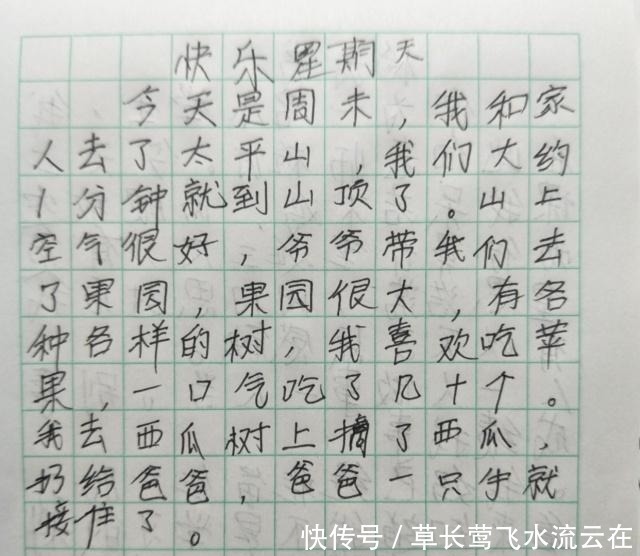 快乐星期天
今天是周末，我和家
人去了太平山，我们大约
1分钟就到山顶了。山上
空气很好，爷爷带我们去
了果园，果园很大，有各
种各样的树，我喜欢吃苹
果，一口气吃了几十个。
我去西瓜树上摘了西瓜，
扔给爸爸，爸爸一只手就
接住了。
快传号/草长莺飞水流云在